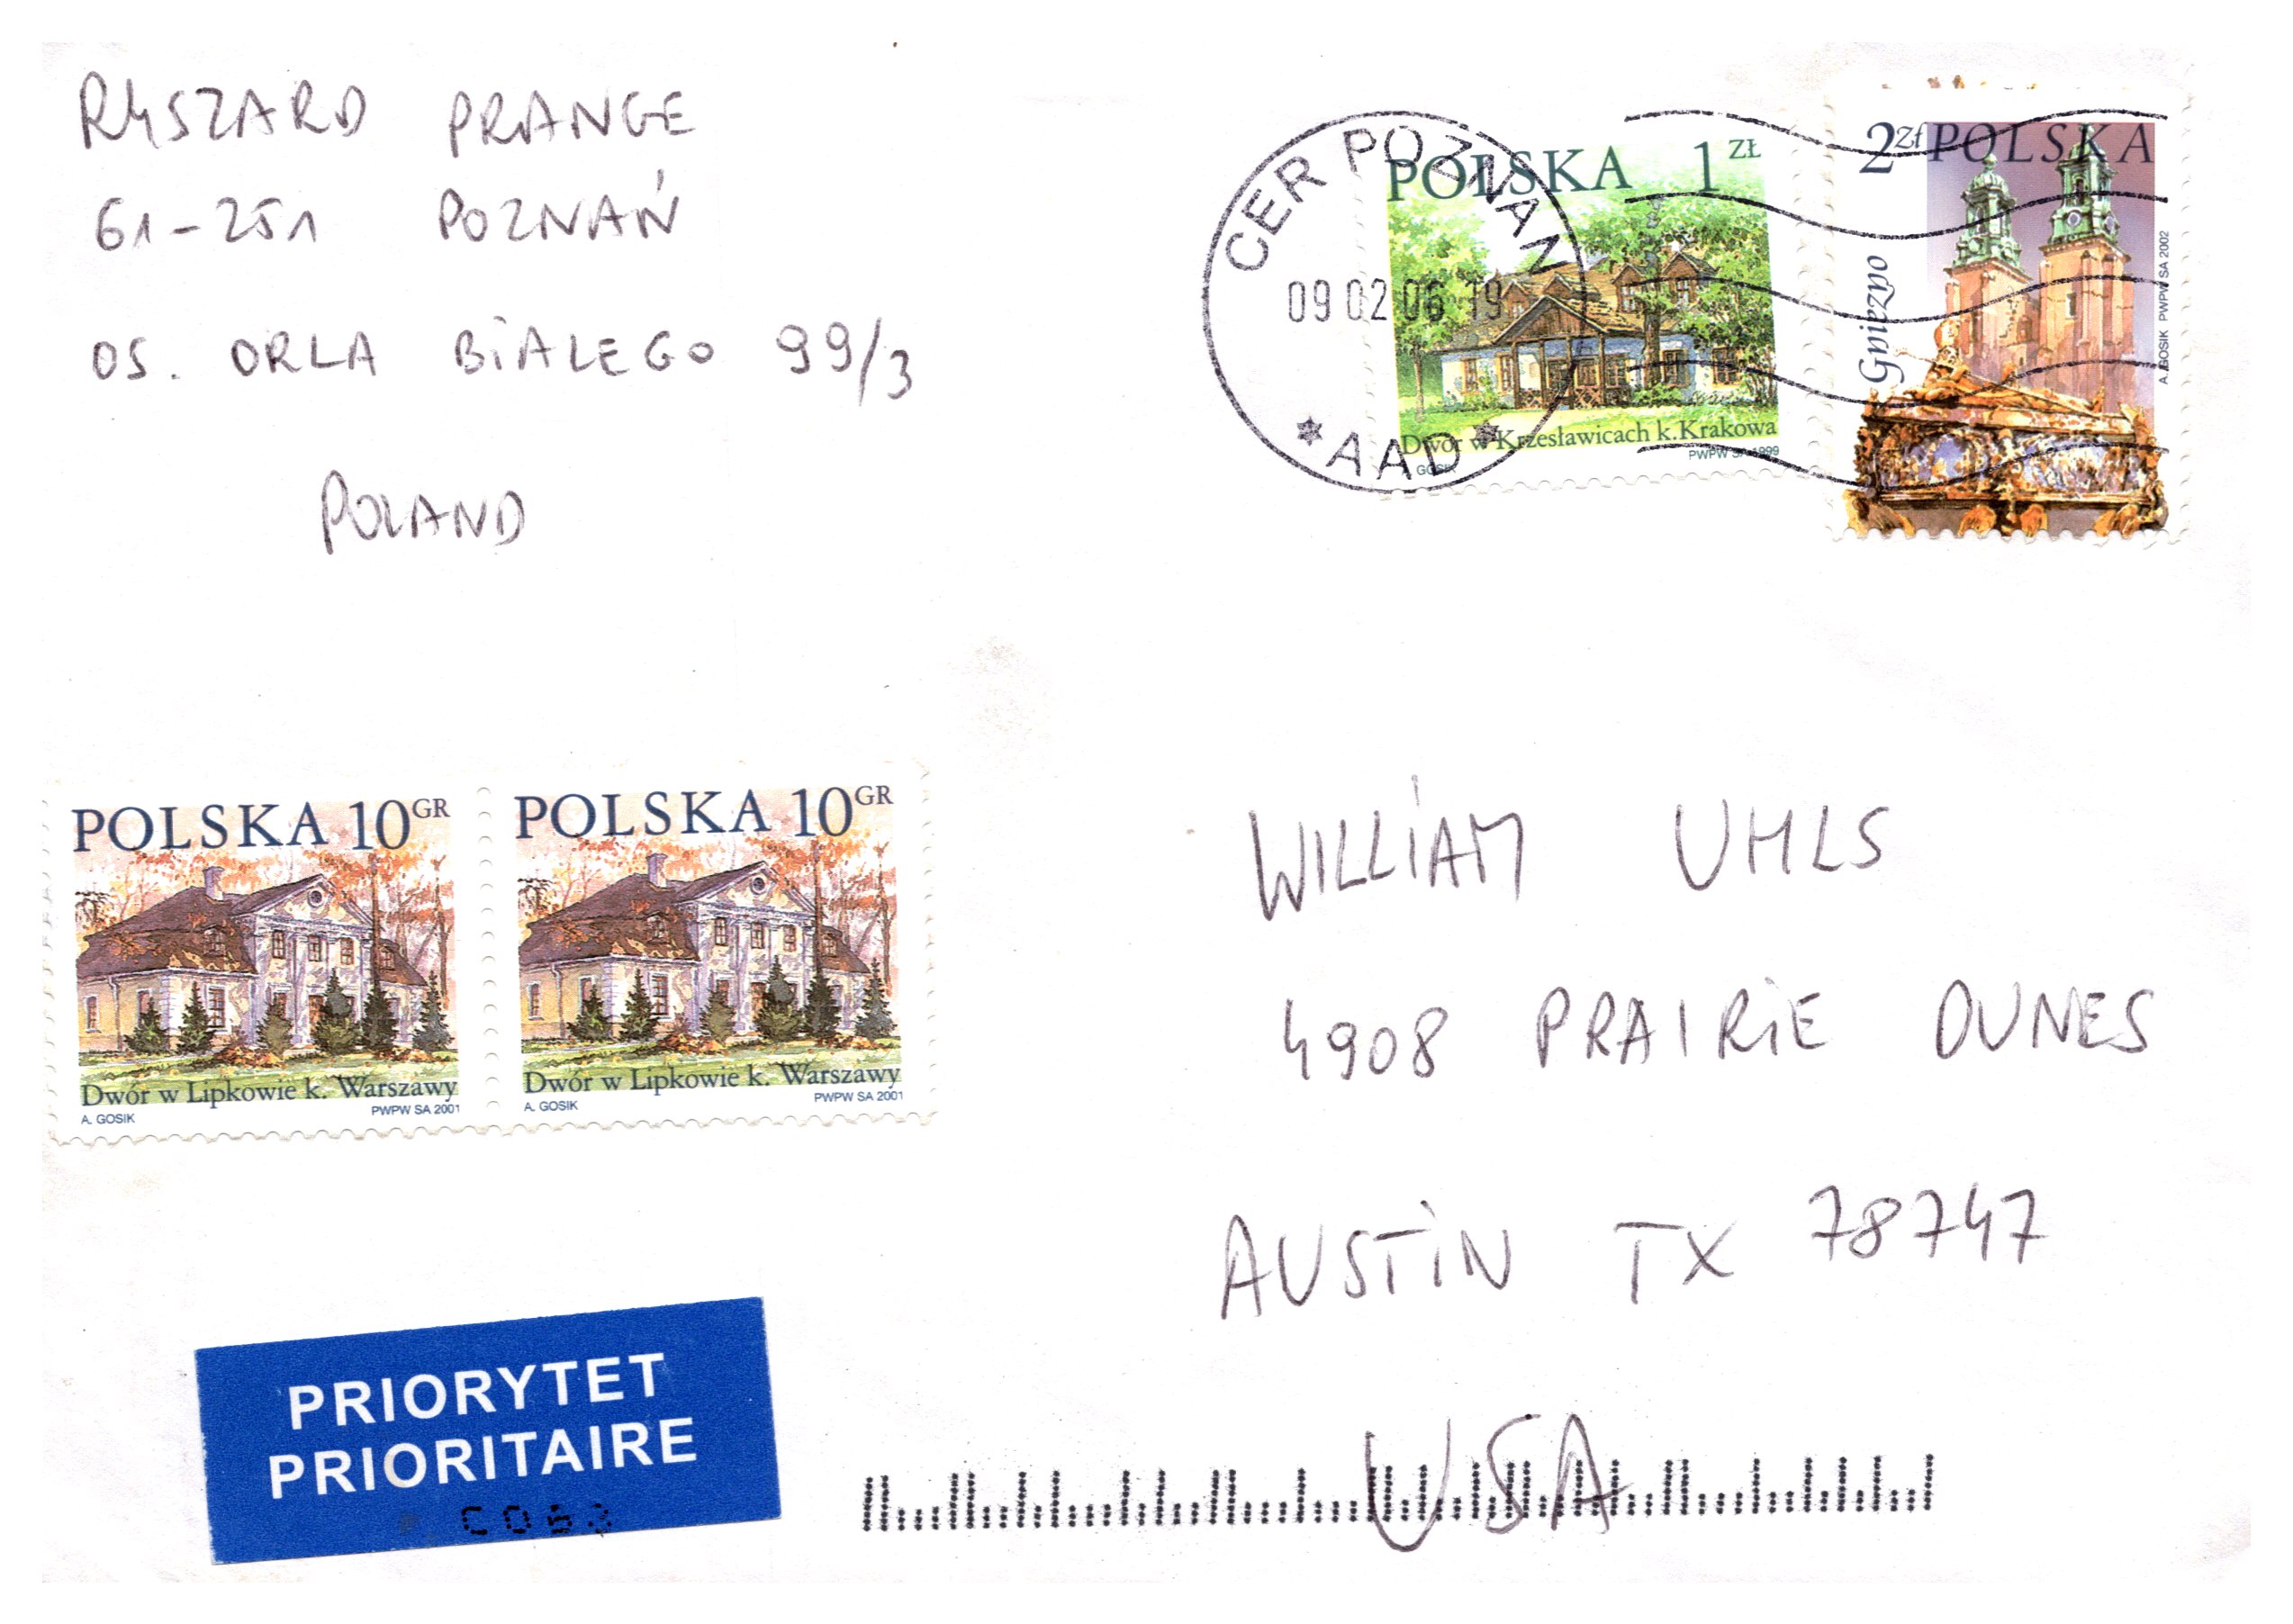 RYSZARD PRANGE
61-251 POZNAŃ
OS. ORLA BIALEGO 99/3
POLAND
CER POZNAN
09 02 06 19
* AAD *
POLSKA 1 ZŁ
Dwór w Krzesławicach k. Krakowa
A. GOSIK PWPW SA 1999
2 Zł POLSKA
Gniezno
A. GOSIK PWPW SA 2002
POLSKA 10 GR
Dwór w Lipkowie k. Warszawy
A. GOSIK PWPW SA 2001
POLSKA 10 GR
Dwór w Lipkowie k. Warszawy
A. GOSIK PWPW SA 2001
WILLIAM UHLS
4908 PRAIRIE DUNES
AUSTIN TX 78747
USA
PRIORYTET
PRIORITAIRE